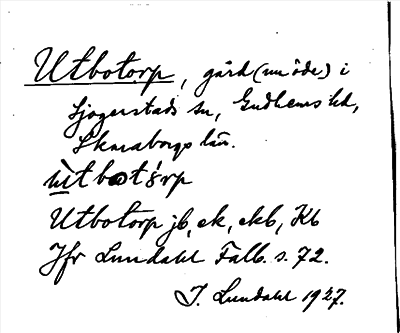 Utbotorp, gård (nu öde) i
Sjogerstads sn, Gudhems hd,
Skaraborgs län.
ùtbotórp
Utbotorp jb, ek, ekb, Kb
Jfr Lundahl Falb. s. 72.
I. Lundahl 1927.